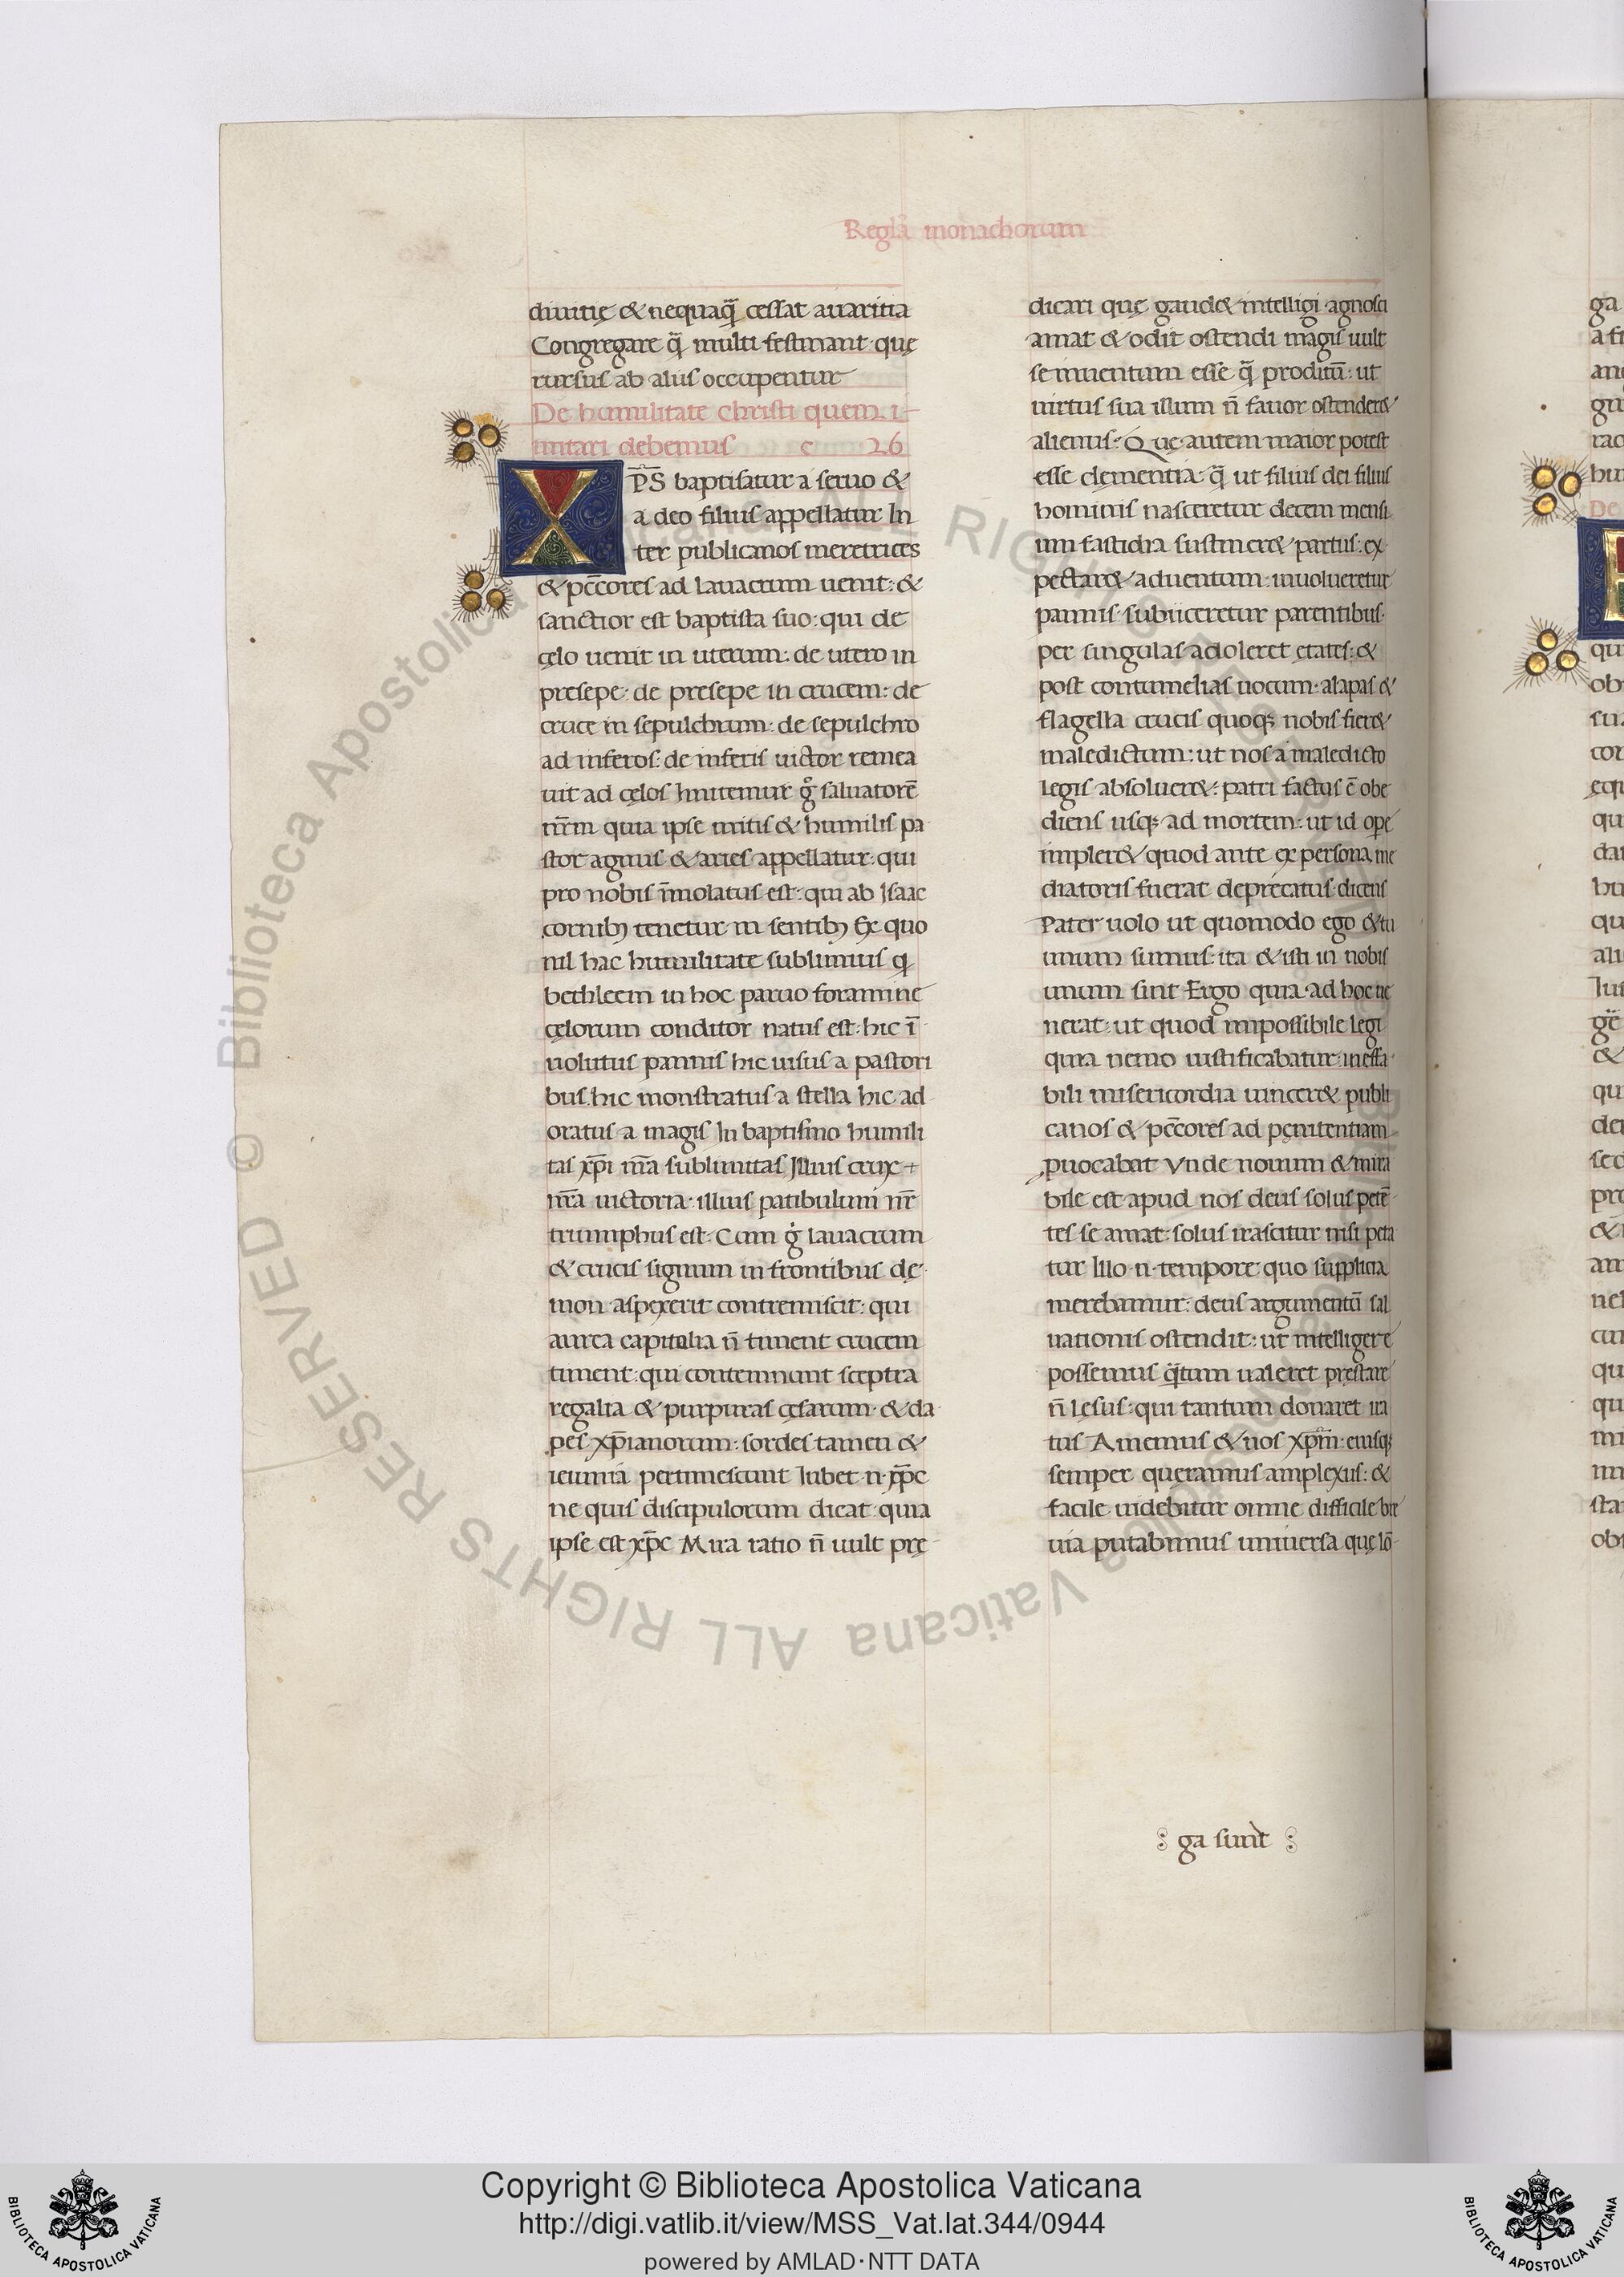 Regla monachorum
diuitię & nequaq̃ cessat auaritia
Congregare q̃ multi festinant que
rursus ab aliis occupentur
De humilitate christi quem i-
mitari debemus c 26
XP̄S baptisatur a seruo &
a deo filius appellatur In
ter publicanos meretrices
& pc̄cores ad lauacrum uenit: &
sanctior est baptista suo: qui de
cęlo uenit in uterum: de utero in
presepe: de presepe in crucem: de
cruce in sepulchrum: de sepulchro
ad inferos: de inferis uictor remea
uit ad cęlos Imitemur g̊ saluatorē
nr̄m quia ipse mitis & humilis pa
stor agnus & aries appellatur: qui
pro nobis īmolatus est: qui ab Isaac
cornibꝫ tenetur in sentibꝫ Ex quo
nil hac humilitate sublimius ꝗ
bethleem in hoc paruo foramine
cęlorum conditor natus est: hic ī-
uolutus pannis hic uisus a pastori
bus hic monstratus a stella hic ad
oratus a magis In baptismo humili
tas xp̄i nr̄a sublimitas Illius crux +
nr̄a uictoria: illius patibulum nr̄
triumphus est: Cum g̊ lauacrum
& crucis signum in frontibus dę-
mon aspexerit contremiscit: qui
aurea capitolia n̄ timent crucem
timent: qui contemnunt sceptra
regalia & purpuras cęsarum & da
pes xp̄ianorum: sordes tamen &
ieiunia pertimescunt Iubet n xp̄c
ne quis discipulorum dicat quia
ipse est xp̄c Mira ratio n̄ uult prę
dicari que gaud& intelligi agnosci
amat & odit ostendi magis uult
se inuentum esse q̃ proditū: ut
uirtus sua illum n̄ fauor ostender&
alienus: Que autem maior potest
esse clementia q̃ ut filius dei filius
hominis nasceretur decem mensi
um fastidia sustiner& partus: ex
pectar& aduentum: inuolueretur
pannis: subiiceretur parentibus:
per singulas adoleret ętates: &
post contumelias uocum: alapas &
flagella crucis quoqꝫ nobis fier&
maledictum: ut nos a maledicto
legis absoluer&: patri factus ē obe
diens usqꝫ ad mortem: ut id ope
impler& quod ante ex persona me
diatoris fuerat deprecatus dicens
Pater uolo ut quomodo ego & tu
unum sumus: ita & isti in nobis
unum sint Ergo quia ad hoc ue
nerat: ut quod impossibile legi
quia nemo iustificabatur: ineffa
bili misericordia uincer& publi
canos & pc̄cores ad pęnitentiam
ꝓuocabat Vnde nouum & mira
bile est apud nos deus solus petē
tes se amat: solus irascitur nisi peta
tur Illo n tempore quo supplicia
merebamur: deus argumentū sal
uationis ostendit: ut intelligere
possemus q̃tum ualeret prestare
n̄ lęsus: qui tantum donaret ira
tus Amemus & nos xp̄m: eiusqꝫ
semper queramus amplexus: &
facile uidebitur omne difficile bre
uia putabimus uniuersa quę lō
ga sunt
Copyright © Biblioteca Apostolica Vaticana
http://digi.vatlib.it/view/MSS_Vat.lat.344/0944
powered by AMLAD·NTT DATA